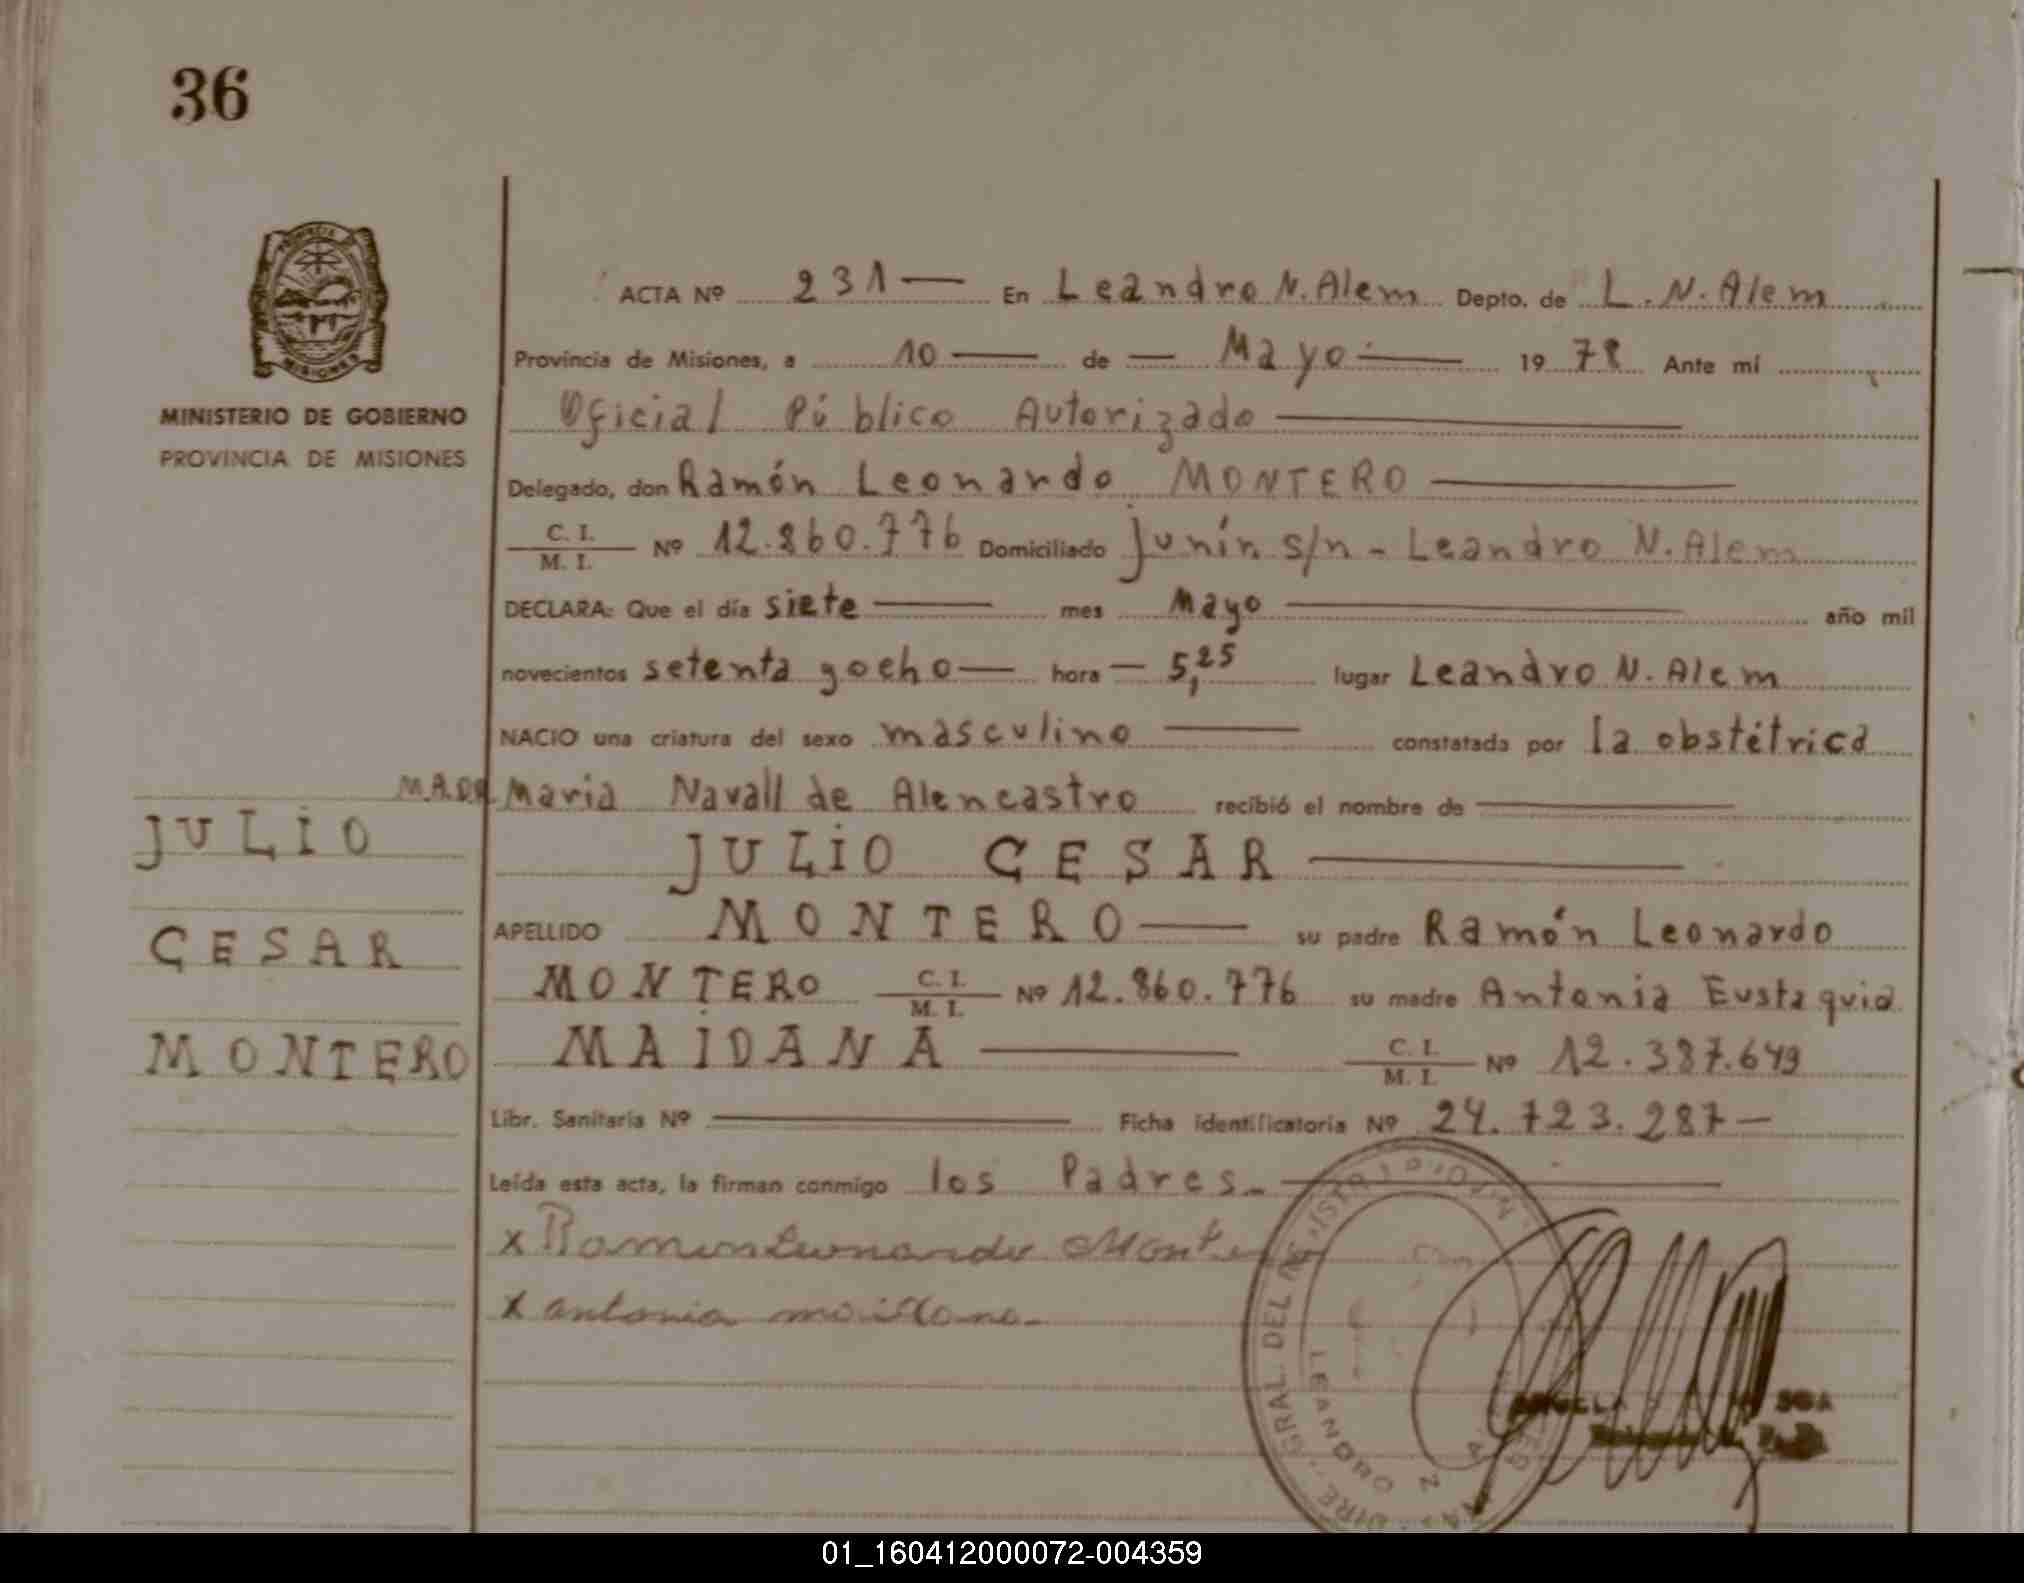 36
PROVINCIA
MISIONES
MINISTERIO DE GOBIERNO
PROVINCIA DE MISIONES
ACTA Nº 231 — En Leandro N. Alem Depto. de L. N. Alem
Provincia de Misiones, a 10 — de — Mayo — 19 78 Ante mí
Oficial Público Autorizado —
Delegado, don Ramón Leonardo MONTERO —
C. I. / M. I. Nº 12.860.776 Domiciliado Junín s/n - Leandro N. Alem
DECLARA: Que el día siete — mes Mayo — año mil
novecientos setenta y ocho — hora — 5,25 lugar Leandro N. Alem
NACIO una criatura del sexo masculino — constatada por la obstétrica
María Navall de Alencastro recibió el nombre de —
JULIO CESAR —
APELLIDO MONTERO — su padre Ramón Leonardo
MONTERO C. I. / M. I. Nº 12.860.776 su madre Antonia Eustaquia
MAIDANA — C. I. / M. I. Nº 12.387.649
Libr. Sanitaria Nº — Ficha identificatoria Nº 24.723.287 —
Leída esta acta, la firman conmigo los Padres. —
x Ramon Leonardo Montero
x antonia maidana.
JULIO
CESAR
MONTERO
GRAL. DEL
LEANDRO N.
01_160412000072-004359